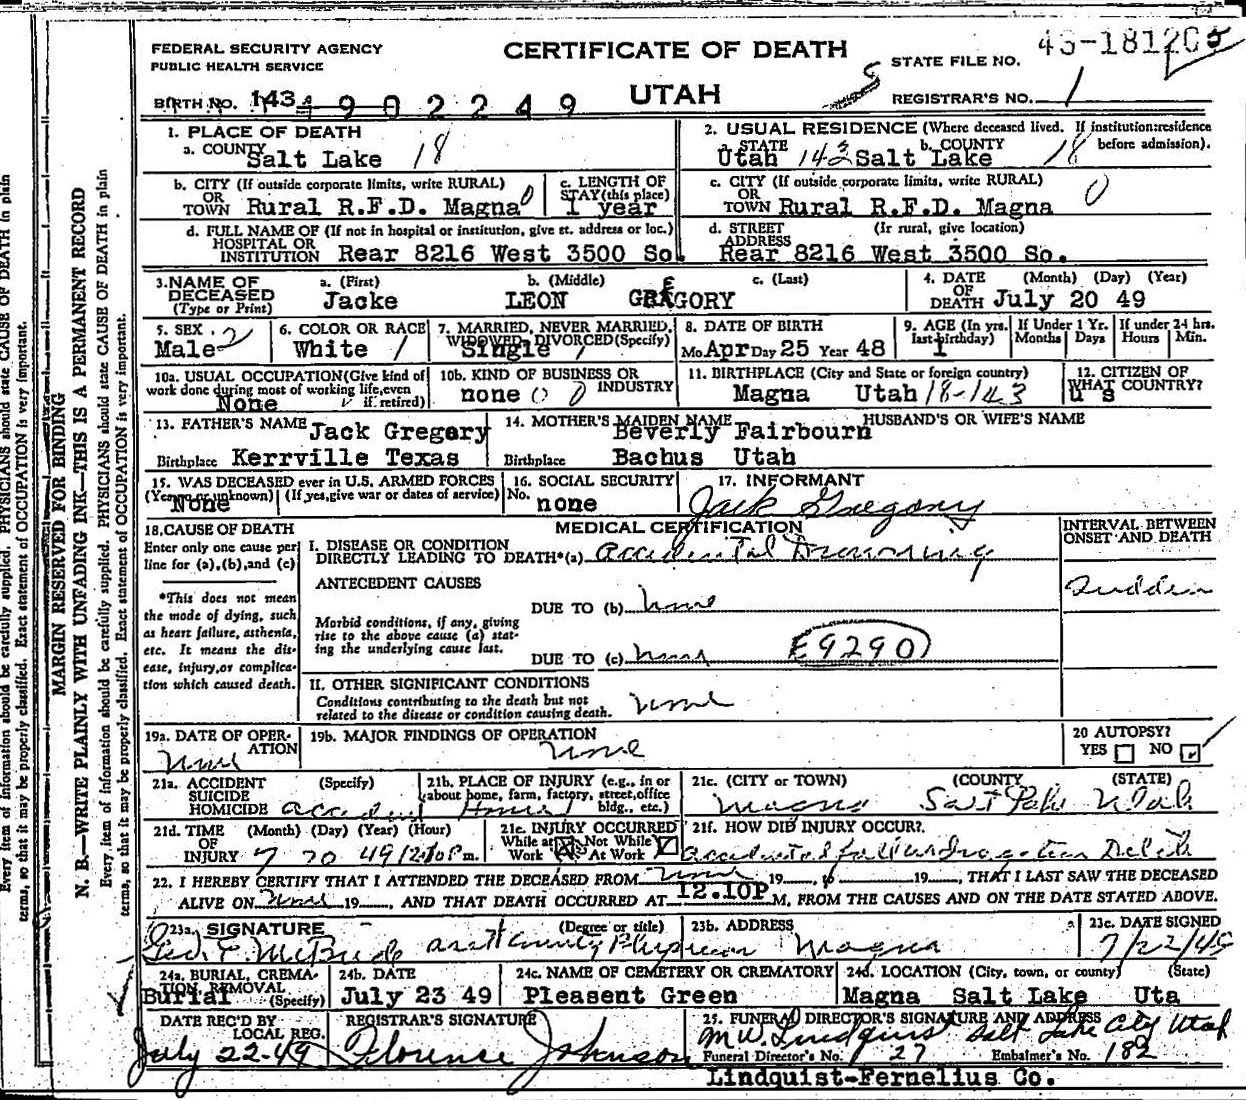 FEDERAL SECURITY AGENCY
PUBLIC HEALTH SERVICE
CERTIFICATE OF DEATH
UTAH
STATE FILE NO.
REGISTRAR'S NO. 1
BIRTH NO. 143 4902249
1. PLACE OF DEATH
a. COUNTY Salt Lake 18
2. USUAL RESIDENCE (Where deceased lived. If institution:residence before admission).
a. STATE Utah 143 b. COUNTY Salt Lake 18
b. CITY (If outside corporate limits, write RURAL) OR TOWN Rural R.F.D. Magna 0
c. LENGTH OF STAY (this place) 1 year
c. CITY (If outside corporate limits, write RURAL) OR TOWN Rural R.F.D. Magna 0
d. FULL NAME OF (If not in hospital or institution, give st. address or loc.) HOSPITAL OR INSTITUTION Rear 8216 West 3500 So.
d. STREET ADDRESS (If rural, give location) Rear 8216 West 3500 So.
3. NAME OF DECEASED (Type or Print)
a. (First) Jacke
b. (Middle) LEON
c. (Last) GREGORY
4. DATE OF DEATH (Month) (Day) (Year) July 20 49
5. SEX 2 Male
6. COLOR OR RACE White 1
7. MARRIED, NEVER MARRIED, WIDOWED, DIVORCED(Specify) Single 1
8. DATE OF BIRTH Mo Apr Day 25 Year 48
9. AGE (In yrs. last birthday) 1
If Under 1 Yr. Months Days
If under 24 hrs. Hours Min.
10a. USUAL OCCUPATION(Give kind of work done during most of working life, even if retired) None
10b. KIND OF BUSINESS OR INDUSTRY none
11. BIRTHPLACE (City and State or foreign country) Magna Utah 18-143
12. CITIZEN OF WHAT COUNTRY? U S
13. FATHER'S NAME Jack Gregory
Birthplace Kerrville Texas
14. MOTHER'S MAIDEN NAME Beverly Fairbourn
Birthplace Bachus Utah
HUSBAND'S OR WIFE'S NAME
15. WAS DECEASED ever in U.S. ARMED FORCES (Yes no or unknown) (If yes, give war or dates of service) None
16. SOCIAL SECURITY No. none
17. INFORMANT Jack Gregory
18. CAUSE OF DEATH
Enter only one cause per line for (a), (b), and (c)
*This does not mean the mode of dying, such as heart failure, asthenia, etc. It means the disease, injury, or complication which caused death.
MEDICAL CERTIFICATION
INTERVAL BETWEEN ONSET AND DEATH
I. DISEASE OR CONDITION DIRECTLY LEADING TO DEATH*(a) Accidental Drowning
Sudden
ANTECEDENT CAUSES
DUE TO (b) none
Morbid conditions, if any, giving rise to the above cause (a) stating the underlying cause last.
DUE TO (c) none E9290
II. OTHER SIGNIFICANT CONDITIONS
Conditions contributing to the death but not related to the disease or condition causing death. none
19a. DATE OF OPERATION none
19b. MAJOR FINDINGS OF OPERATION none
20 AUTOPSY? YES NO
21a. ACCIDENT SUICIDE HOMICIDE (Specify) accident
21b. PLACE OF INJURY (e.g., in or about home, farm, factory, street, office bldg., etc.) Home 1
21c. (CITY or TOWN) (COUNTY (STATE)
Magna Salt Lake Utah
21d. TIME OF INJURY (Month) (Day) (Year) (Hour) 7 20 49 12:10 P m.
21e. INJURY OCCURRED While at Work Not While At Work
21f. HOW DID INJURY OCCUR?
22. I HEREBY CERTIFY THAT I ATTENDED THE DECEASED FROM none 19 to 19, THAT I LAST SAW THE DECEASED
ALIVE ON none 19, AND THAT DEATH OCCURRED AT 12.10P M, FROM THE CAUSES AND ON THE DATE STATED ABOVE.
23a. SIGNATURE (Degree or title) McBride Asst County Physician
23b. ADDRESS Magna
23c. DATE SIGNED 7/22/49
24a. BURIAL, CREMATION, REMOVAL (Specify) Burial
24b. DATE July 23 49
24c. NAME OF CEMETERY OR CREMATORY Pleasent Green
24d. LOCATION (City, town, or county) (State) Magna Salt Lake Uta
DATE REC'D BY LOCAL REG. July 22-49
REGISTRAR'S SIGNATURE Florence Johnson
25. FUNERAL DIRECTOR'S SIGNATURE AND ADDRESS M W. Lindquist Salt Lake City Utah
Funeral Director's No. 27 Embalmer's No. 182
Lindquist-Fernelius Co.
MARGIN RESERVED FOR BINDING
N. B.—WRITE PLAINLY WITH UNFADING INK—THIS IS A PERMANENT RECORD
Every item of information should be carefully supplied. PHYSICIANS should state CAUSE OF DEATH in plain
terms, so that it may be properly classified. Exact statement of OCCUPATION is very important.